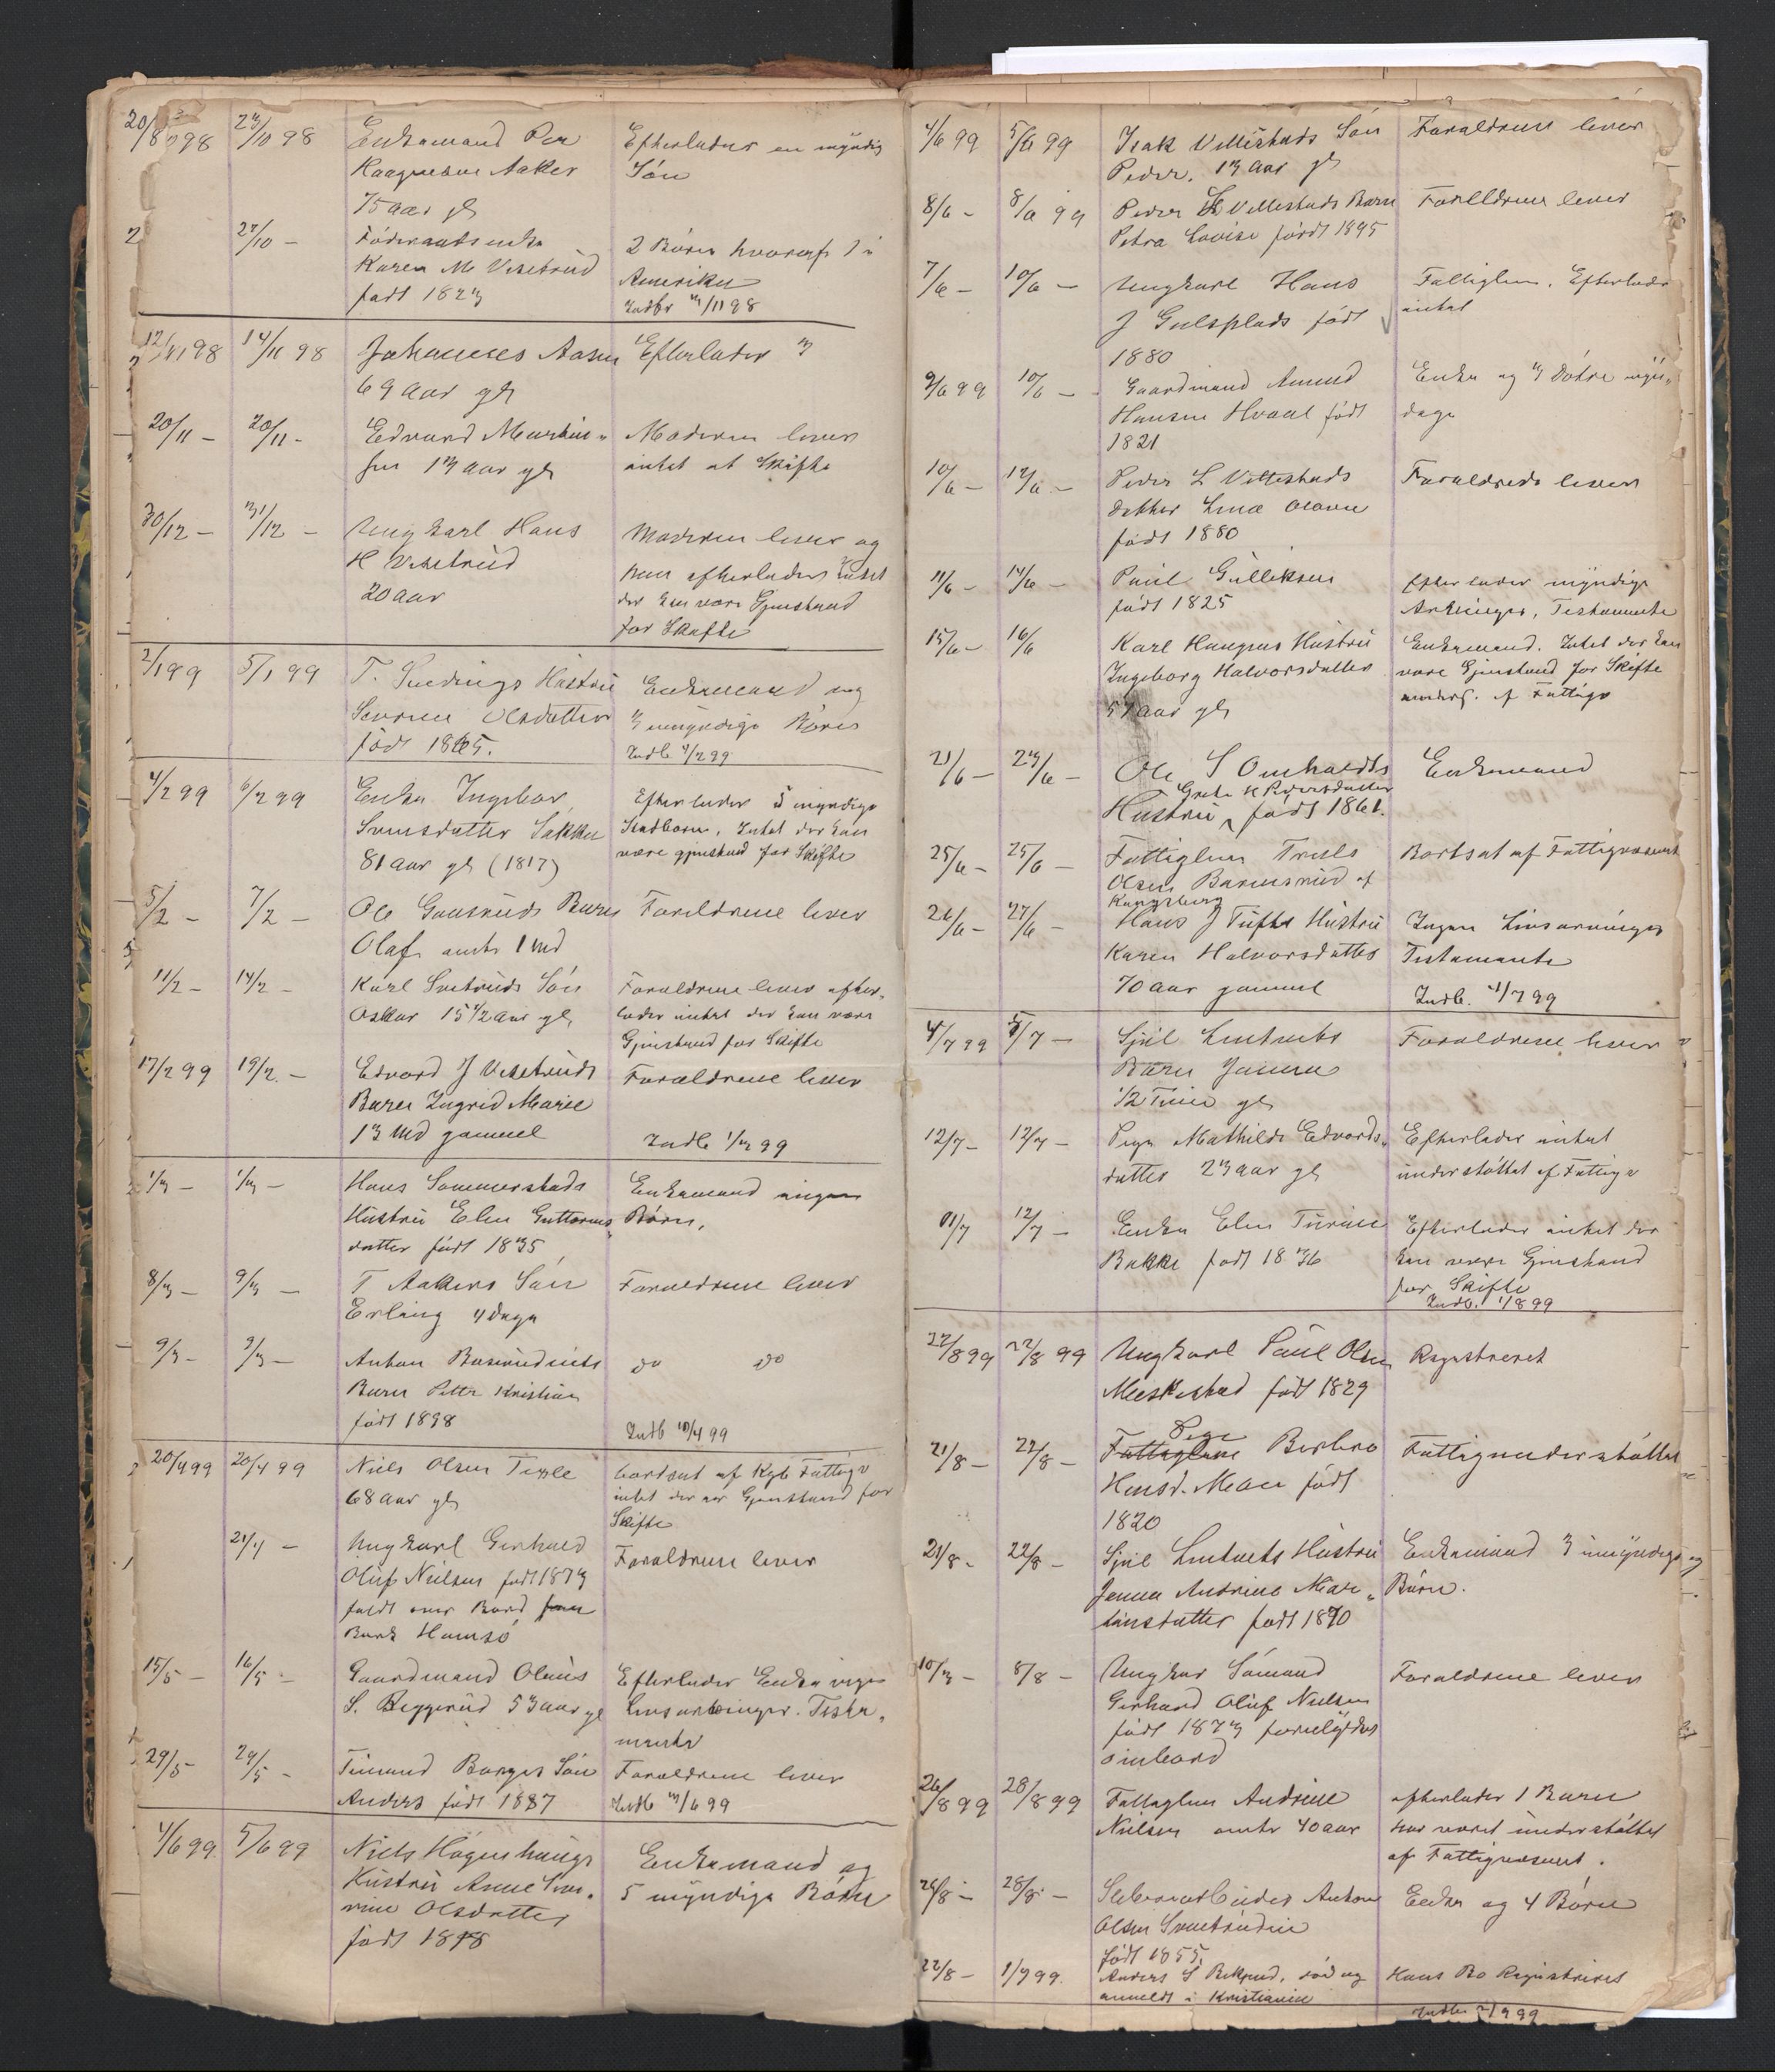 20/8 98 23/10 98 Enkemand Per Efterlader en myndig
Haagensen Aaker Søn
75 aar gl
27/10 - Føderaadsenke 2 Børn hvoraf 1 i
Karen M Visetrud Amerika
født 1823 Indb 3/11 98
12/11 98 14/11 98 Johannes Aasen Efterlader 3
69 aar gl
20/11 - 20/11 - Edvard Martin- Moderen lever
sen 13 aar gl intet at Skifte
30/12 - 31/12 - Ungkarl Hans Moderen lever og
H Visetrud han efterlader Intet
20 aar der kan være Gjenstand
for Skifte
2/1 99 5/1 99 T. Hustru Enkemand og
Olsdatter 3 umyndige Børn
født 1865. Indb 4/2 99
4/2 99 6/2 99 Enke Ingebor Efterlader 5 myndige
Svensdatter Bakke Intet der kan
81 aar gl (1817) være gjenstand for Skifte
5/2 - 7/2 - Ole Barn Foreldrene lever
Olaf omtr 1 Md
11/2 - 14/2 - Karl Søn Foreldrene lever efter-
Oskar 15 1/2 aar gl, lader intet der kan være
Gjenstand for Skifte
17/2 99 19/2 - Edvard J Visetruds Forældrene lever
Barn Ingrid Marie
13 Md gammel Indb 1/3 99
1/3 - 1/3 - Hans Sommerstads Enkemand ingen
Hustru Elen Guttorms- Børn.
datter født 1835
8/3 - 9/3 - T Aakers Søn Foreldrene lever
Erling 4 Dage
9/3 - 9/3 - Anton do do
Barn Petter Kristian
født 1898 Indb 10/4 99
20/4 99 20/4 99 Niels Olsen bortsat af Kgb Fattigv
68 aar gl intet der er Gjenstand for
Skifte
21/4 - Ungkarl Gerhard Foreldrene lever
Oluf Nielsen født 1873
faldt over Bord fra
Bark Hamsö
15/5 - 16/5 - Gaardmand Olaus Efterlader Enke ingen
S. Beggerud 53 aar gl Livsarvinger. Testa-
mente
29/5 - 29/5 - Søn Foreldrene lever
Anders født 1887 Indb 3/6 99
4/6 99 5/6 99 Niels Høgenhaugs Enkemand og
Hustru Anne Seve- 5 myndige Børn
rine Olsdatter
født 1848
4/6 99 5/6 99 Isak Villestads Søn Foreldrene lever
Peder. 13 Aar gl
8/6 - 8/6 99 Peder L Villestads Barn Forelldrene lever
Petra Lovise født 1895
7/6 - 10/6 - Ungkarl Hans Fattiglem. Efterlader
J Gulsplads født intet
1880
9/6 99 10/6 - Gaardmand Amund Enke og 3 Døtre myn-
Hansen Hvaal født dige
1821
10/6 - 12/6 - Peder L Villestads Foreldrede lever
datter Lina Olava
født 1880
11/6 - 14/6 - Paul Gulleksen Efterlader myndige
født 1825 Arvinger, Testamente
15/6 - 16/6 Karl Haugens Hustru Enkemand. Intet der kan
Ingeborg Halvorsdatter være Gjenstand for Skifte
51 aar gl unders. af Fattigv
21/6 - 23/6 - Ole S Omholdts Enkemand
Grete K Pedersdatter
Hustru født 1861.
25/6 - 25/6 - Fattiglem Truls Bortsat af Fattigvæsenet
Olsen af
Kongsberg
26/6 - 27/6 - Hans J Tufte Hustru Ingen Livsarvinger
Karen Halvorsdatter Testamente
70 aar gammel Indb. 1/7 99
4/7 99 5/7 - Foreldrene lever
Barn Janna
1/2 Time gl
12/7 - 12/7 - Pige Mathilde Edvards- Efterlader intet
datter 23 aar gl understøttet af Fattigv
11/7 12/7 - Enke Elen Turine Efterlader intet der
Bakke født 1836 kan være Gjenstand
for Skifte
Indb. 1/8 99
22/8 99 22/8 99 Ungkarl Paul Olsen Registreret
født 1829
21/8 - 22/8 - Pige
Fattiglem Berbro Fattigunderstøttet
Hansd. Moen født
1820
21/8 - 22/8 - Hustru Enkemand 3 umyndige
Janna Andrine Mar- Børn.
tinsdatter født 1870
10/3 - 8/8 - Ungkar Sømand Foreldrene lever
Gerhard Oluf Nielsen
født 1873 forulykket
ombord
26/8 99 28/8 99 Fattiglem Andrine efterlader 1 Barn
Nielsen omtr 40 aar har været understøttet
af Fattigvæsenet.
26/8 - 28/8 - Anton Enke og 4 Børn
Olsen
født 1855.
22/8 - 1/9 99. Anders S død og Hans Bo Registreres
anmeldt i Kristiania
Indb 99